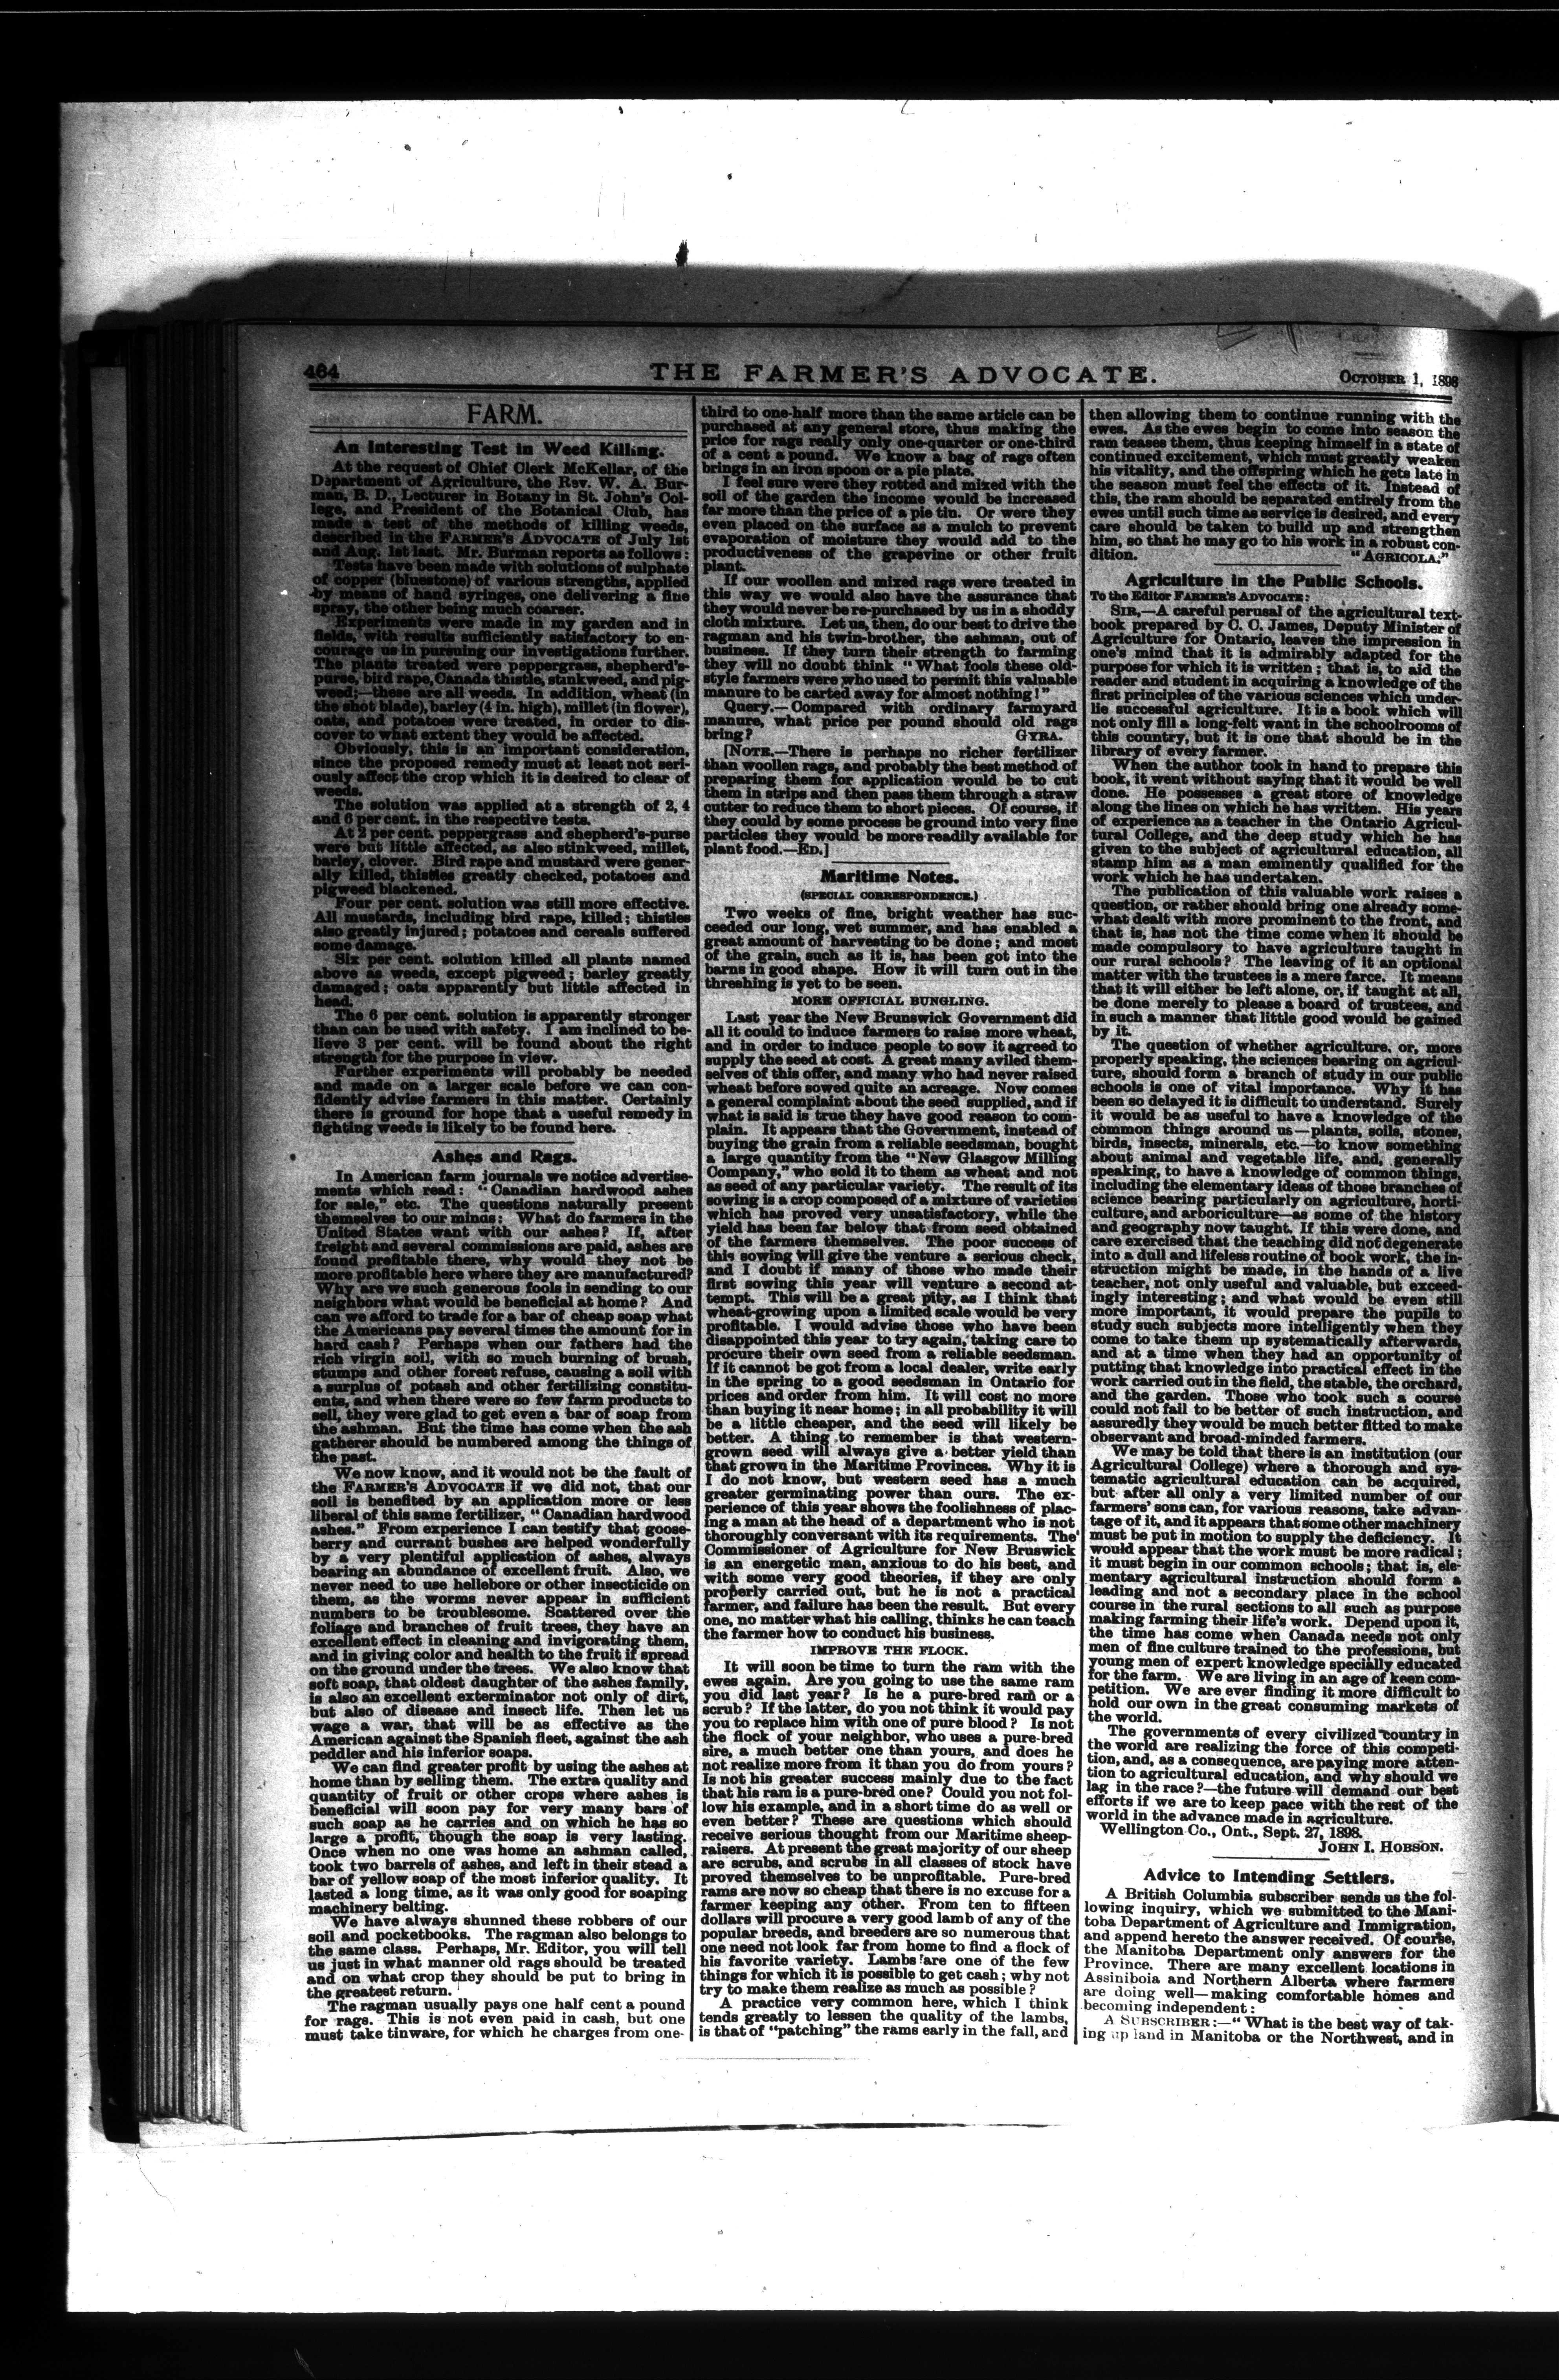 464
THE FARMER'S ADVOCATE.
OCTOBER 1, 1898
FARM.
An Interesting Test in Weed Killing.
At the request of Chief Clerk McKellar, of the
Department of Agriculture, the Rev. W. A. Bur-
man, B. D., Lecturer in Botany in St. John's Col-
lege, and President of the Botanical Club, has
made a test of the methods of killing weeds,
described in the FARMER'S ADVOCATE of July 1st
and Aug. 1st last. Mr. Burman reports as follows:
Tests have been made with solutions of sulphate
of copper (bluestone) of various strengths, applied
by means of hand syringes, one delivering a fine
spray, the other being much coarser.
Experiments were made in my garden and in
fields, with results sufficiently satisfactory to en-
courage us in pursuing our investigations further.
The plants treated were peppergrass, shepherd's-
purse, bird rape, Canada thistle, stankweed, and pig-
weed;—these are all weeds. In addition, wheat (in
the shot blade), barley (4 in. high), millet (in flower),
oats, and potatoes were treated, in order to dis-
cover to what extent they would be affected.
Obviously, this is an important consideration,
since the proposed remedy must at least not seri-
ously affect the crop which it is desired to clear of
weeds.
The solution was applied at a strength of 2, 4
and 6 per cent. in the respective tests.
At 2 per cent. peppergrass and shepherd's-purse
were but little affected, as also stinkweed, millet,
barley, clover. Bird rape and mustard were gener-
ally killed, thistles greatly checked, potatoes and
pigweed blackened.
Four per cent. solution was still more effective.
All mustards, including bird rape, killed; thistles
also greatly injured; potatoes and cereals suffered
some damage.
Six per cent. solution killed all plants named
above as weeds, except pigweed; barley greatly
damaged; oats apparently but little affected in
head.
The 6 per cent. solution is apparently stronger
than can be used with safety. I am inclined to be-
lieve 3 per cent. will be found about the right
strength for the purpose in view.
Further experiments will probably be needed
and made on a larger scale before we can con-
fidently advise farmers in this matter. Certainly
there is ground for hope that a useful remedy in
fighting weeds is likely to be found here.
Ashes and Rags.
In American farm journals we notice advertise-
ments which read: "Canadian hardwood ashes
for sale," etc. The questions naturally present
themselves to our minds: What do farmers in the
United States want with our ashes? If, after
freight and several commissions are paid, ashes are
found profitable there, why would they not be
more profitable here where they are manufactured?
Why are we such generous fools in sending to our
neighbors what would be beneficial at home? And
can we afford to trade for a bar of cheap soap what
the Americans pay several times the amount for in
hard cash? Perhaps when our fathers had the
rich virgin soil, with so much burning of brush,
stumps and other forest refuse, causing a soil with
a surplus of potash and other fertilizing constitu-
ents, and when there were so few farm products to
sell, they were glad to get even a bar of soap from
the ashman. But the time has come when the ash
gatherer should be numbered among the things of
the past.
We now know, and it would not be the fault of
the FARMER'S ADVOCATE if we did not, that our
soil is benefited by an application more or less
liberal of this same fertilizer, "Canadian hardwood
ashes." From experience I can testify that goose-
berry and currant bushes are helped wonderfully
by a very plentiful application of ashes, always
bearing an abundance of excellent fruit. Also, we
never need to use hellebore or other insecticide on
them, as the worms never appear in sufficient
numbers to be troublesome. Scattered over the
foliage and branches of fruit trees, they have an
excellent effect in cleaning and invigorating them,
and in giving color and health to the fruit if spread
on the ground under the trees. We also know that
soft soap, that oldest daughter of the ashes family,
is also an excellent exterminator not only of dirt,
but also of disease and insect life. Then let us
wage a war, that will be as effective as the
American against the Spanish fleet, against the ash
peddler and his inferior soaps.
We can find greater profit by using the ashes at
home than by selling them. The extra quality and
quantity of fruit or other crops where ashes is
beneficial will soon pay for very many bars of
such soap as he carries and on which he has so
large a profit, though the soap is very lasting.
Once when no one was home an ashman called,
took two barrels of ashes, and left in their stead a
bar of yellow soap of the most inferior quality. It
lasted a long time, as it was only good for soaping
machinery belting.
We have always shunned these robbers of our
soil and pocketbooks. The ragman also belongs to
the same class. Perhaps, Mr. Editor, you will tell
us just in what manner old rags should be treated
and on what crop they should be put to bring in
the greatest return.
The ragman usually pays one half cent a pound
for rags. This is not even paid in cash, but one
must take tinware, for which he charges from one-
third to one-half more than the same article can be
purchased at any general store, thus making the
price for rags really only one-quarter or one-third
of a cent a pound. We know a bag of rags often
brings in an iron spoon or a pie plate.
I feel sure were they rotted and mixed with the
soil of the garden the income would be increased
far more than the price of a pie tin. Or were they
even placed on the surface as a mulch to prevent
evaporation of moisture they would add to the
productiveness of the grapevine or other fruit
plant.
If our woollen and mixed rags were treated in
this way we would also have the assurance that
they would never be re-purchased by us in a shoddy
cloth mixture. Let us, then, do our best to drive the
ragman and his twin-brother, the ashman, out of
business. If they turn their strength to farming
they will no doubt think "What fools these old-
style farmers were who used to permit this valuable
manure to be carted away for almost nothing!"
Query.—Compared with ordinary farmyard
manure, what price per pound should old rags
bring? GYRA.
[NOTE.—There is perhaps no richer fertilizer
than woollen rags, and probably the best method of
preparing them for application would be to cut
them in strips and then pass them through a straw
cutter to reduce them to short pieces. Of course, if
they could by some process be ground into very fine
particles they would be more readily available for
plant food.—ED.]
Maritime Notes.
(SPECIAL CORRESPONDENCE.)
Two weeks of fine, bright weather has suc-
ceeded our long, wet summer, and has enabled a
great amount of harvesting to be done; and most
of the grain, such as it is, has been got into the
barns in good shape. How it will turn out in the
threshing is yet to be seen.
MORE OFFICIAL BUNGLING.
Last year the New Brunswick Government did
all it could to induce farmers to raise more wheat,
and in order to induce people to sow it agreed to
supply the seed at cost. A great many aviled them-
selves of this offer, and many who had never raised
wheat before sowed quite an acreage. Now comes
a general complaint about the seed supplied, and if
what is said is true they have good reason to com-
plain. It appears that the Government, instead of
buying the grain from a reliable seedsman, bought
a large quantity from the "New Glasgow Milling
Company," who sold it to them as wheat and not
as seed of any particular variety. The result of its
sowing is a crop composed of a mixture of varieties
which has proved very unsatisfactory, while the
yield has been far below that from seed obtained
of the farmers themselves. The poor success of
this sowing will give the venture a serious check,
and I doubt if many of those who made their
first sowing this year will venture a second at-
tempt. This will be a great pity, as I think that
wheat-growing upon a limited scale would be very
profitable. I would advise those who have been
disappointed this year to try again, taking care to
procure their own seed from a reliable seedsman.
If it cannot be got from a local dealer, write early
in the spring to a good seedsman in Ontario for
prices and order from him. It will cost no more
than buying it near home; in all probability it will
be a little cheaper, and the seed will likely be
better. A thing to remember is that western-
grown seed will always give a better yield than
that grown in the Maritime Provinces. Why it is
I do not know, but western seed has a much
greater germinating power than ours. The ex-
perience of this year shows the foolishness of plac-
ing a man at the head of a department who is not
thoroughly conversant with its requirements. The
Commissioner of Agriculture for New Bruswick
is an energetic man, anxious to do his best, and
with some very good theories, if they are only
properly carried out, but he is not a practical
farmer, and failure has been the result. But every
one, no matter what his calling, thinks he can teach
the farmer how to conduct his business.
IMPROVE THE FLOCK.
It will soon be time to turn the ram with the
ewes again. Are you going to use the same ram
you did last year? Is he a pure-bred ram or a
scrub? If the latter, do you not think it would pay
you to replace him with one of pure blood? Is not
the flock of your neighbor, who uses a pure-bred
sire, a much better one than yours, and does he
not realize more from it than you do from yours?
Is not his greater success mainly due to the fact
that his ram is a pure-bred one? Could you not fol-
low his example, and in a short time do as well or
even better? These are questions which should
receive serious thought from our Maritime sheep-
raisers. At present the great majority of our sheep
are scrubs, and scrubs in all classes of stock have
proved themselves to be unprofitable. Pure-bred
rams are now so cheap that there is no excuse for a
farmer keeping any other. From ten to fifteen
dollars will procure a very good lamb of any of the
popular breeds, and breeders are so numerous that
one need not look far from home to find a flock of
his favorite variety. Lambs are one of the few
things for which it is possible to get cash; why not
try to make them realize as much as possible?
A practice very common here, which I think
tends greatly to lessen the quality of the lambs,
is that of "patching" the rams early in the fall, and
then allowing them to continue running with the
ewes. As the ewes begin to come into season the
ram teases them, thus keeping himself in a state of
continued excitement, which must greatly weaken
his vitality, and the offspring which he gets late in
the season must feel the effects of it. Instead of
this, the ram should be separated entirely from the
ewes until such time as service is desired, and every
care should be taken to build up and strengthen
him, so that he may go to his work in a robust con-
dition. "AGRICOLA."
Agriculture in the Public Schools.
To the Editor FARMER'S ADVOCATE:
SIR,—A careful perusal of the agricultural text-
book prepared by C. C. James, Deputy Minister of
Agriculture for Ontario, leaves the impression in
one's mind that it is admirably adapted for the
purpose for which it is written; that is, to aid the
reader and student in acquiring a knowledge of the
first principles of the various sciences which under-
lie successful agriculture. It is a book which will
not only fill a long-felt want in the schoolrooms of
this country, but it is one that should be in the
library of every farmer.
When the author took in hand to prepare this
book, it went without saying that it would be well
done. He possesses a great store of knowledge
along the lines on which he has written. His years
of experience as a teacher in the Ontario Agricul-
tural College, and the deep study which he has
given to the subject of agricultural education, all
stamp him as a man eminently qualified for the
work which he has undertaken.
The publication of this valuable work raises a
question, or rather should bring one already some-
what dealt with more prominent to the front, and
that is, has not the time come when it should be
made compulsory to have agriculture taught in
our rural schools? The leaving of it an optional
matter with the trustees is a mere farce. It means
that it will either be left alone, or, if taught at all,
be done merely to please a board of trustees, and
in such a manner that little good would be gained
by it.
The question of whether agriculture, or, more
properly speaking, the sciences bearing on agricul-
ture, should form a branch of study in our public
schools is one of vital importance. Why it has
been so delayed it is difficult to understand. Surely
it would be as useful to have a knowledge of the
common things around us—plants, soils, stones,
birds, insects, minerals, etc.—to know something
about animal and vegetable life, and, generally
speaking, to have a knowledge of common things,
including the elementary ideas of those branches of
science bearing particularly on agriculture, horti-
culture, and arboriculture—as some of the history
and geography now taught. If this were done, and
care exercised that the teaching did not degenerate
into a dull and lifeless routine of book work, the in-
struction might be made, in the hands of a live
teacher, not only useful and valuable, but exceed-
ingly interesting; and what would be even still
more important, it would prepare the pupils to
study such subjects more intelligently when they
come to take them up systematically afterwards,
and at a time when they had an opportunity of
putting that knowledge into practical effect in the
work carried out in the field, the stable, the orchard,
and the garden. Those who took such a course
could not fail to be better of such instruction, and
assuredly they would be much better fitted to make
observant and broad-minded farmers.
We may be told that there is an institution (our
Agricultural College) where a thorough and sys-
tematic agricultural education can be acquired,
but after all only a very limited number of our
farmers' sons can, for various reasons, take advan-
tage of it, and it appears that some other machinery
must be put in motion to supply the deficiency. It
would appear that the work must be more radical;
it must begin in our common schools; that is, ele-
mentary agricultural instruction should form a
leading and not a secondary place in the school
course in the rural sections to all such as purpose
making farming their life's work. Depend upon it,
the time has come when Canada needs not only
men of fine culture trained to the professions, but
young men of expert knowledge specially educated
for the farm. We are living in an age of keen com-
petition. We are ever finding it more difficult to
hold our own in the great consuming markets of
the world.
The governments of every civilized country in
the world are realizing the force of this competi-
tion, and, as a consequence, are paying more atten-
tion to agricultural education, and why should we
lag in the race?—the future will demand our best
efforts if we are to keep pace with the rest of the
world in the advance made in agriculture.
Wellington Co., Ont., Sept. 27, 1898.
JOHN I. HOBSON.
Advice to Intending Settlers.
A British Columbia subscriber sends us the fol-
lowing inquiry, which we submitted to the Mani-
toba Department of Agriculture and Immigration,
and append hereto the answer received. Of course,
the Manitoba Department only answers for the
Province. There are many excellent locations in
Assiniboia and Northern Alberta where farmers
are doing well—making comfortable homes and
becoming independent:
A SUBSCRIBER:—"What is the best way of tak-
ing up land in Manitoba or the Northwest, and in